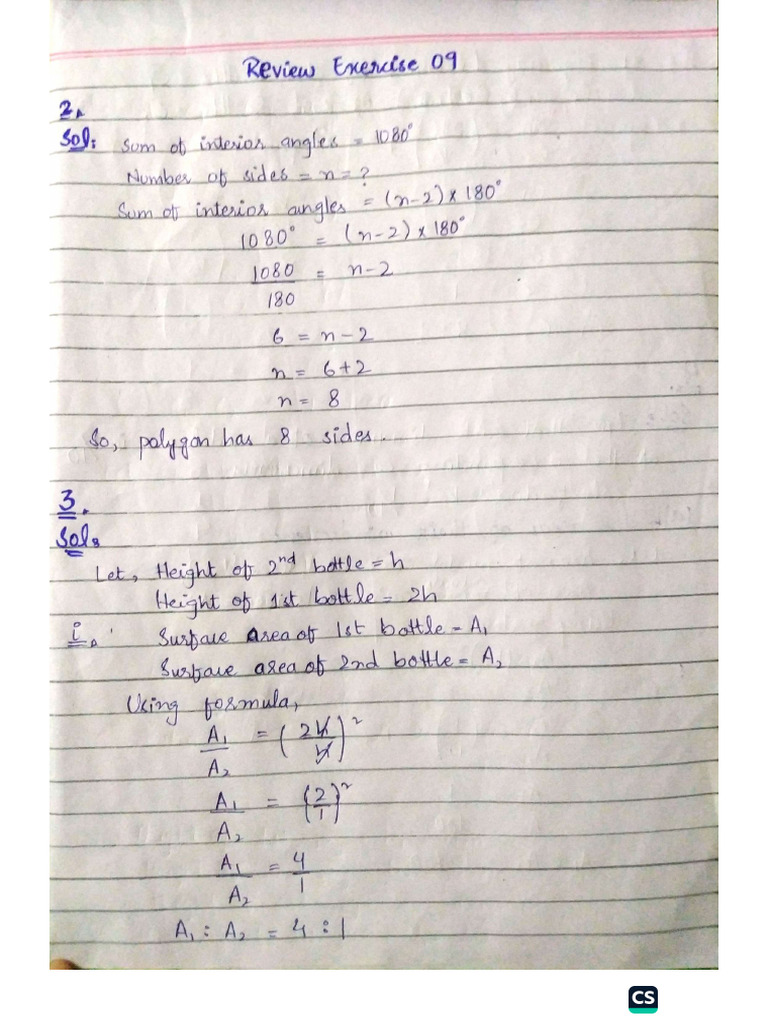 Review Exercise 09
2.
Sol: Sum of interior angles = 1080°
Number of sides = n = ?
Sum of interior angles = (n-2) × 180°
1080° = (n-2) × 180°
1080/180 = n-2
6 = n-2
n = 6+2
n = 8
So, polygon has 8 sides.
3.
Sol:
Let, Height of 2nd bottle = h
Height of 1st bottle = 2h
i. Surface Area of 1st bottle = A₁
Surface area of 2nd bottle = A₂
Using formula,
A₁/A₂ = (2h/h)²
A₁/A₂ = (2/1)²
A₁/A₂ = 4/1
A₁ : A₂ = 4 : 1
CS